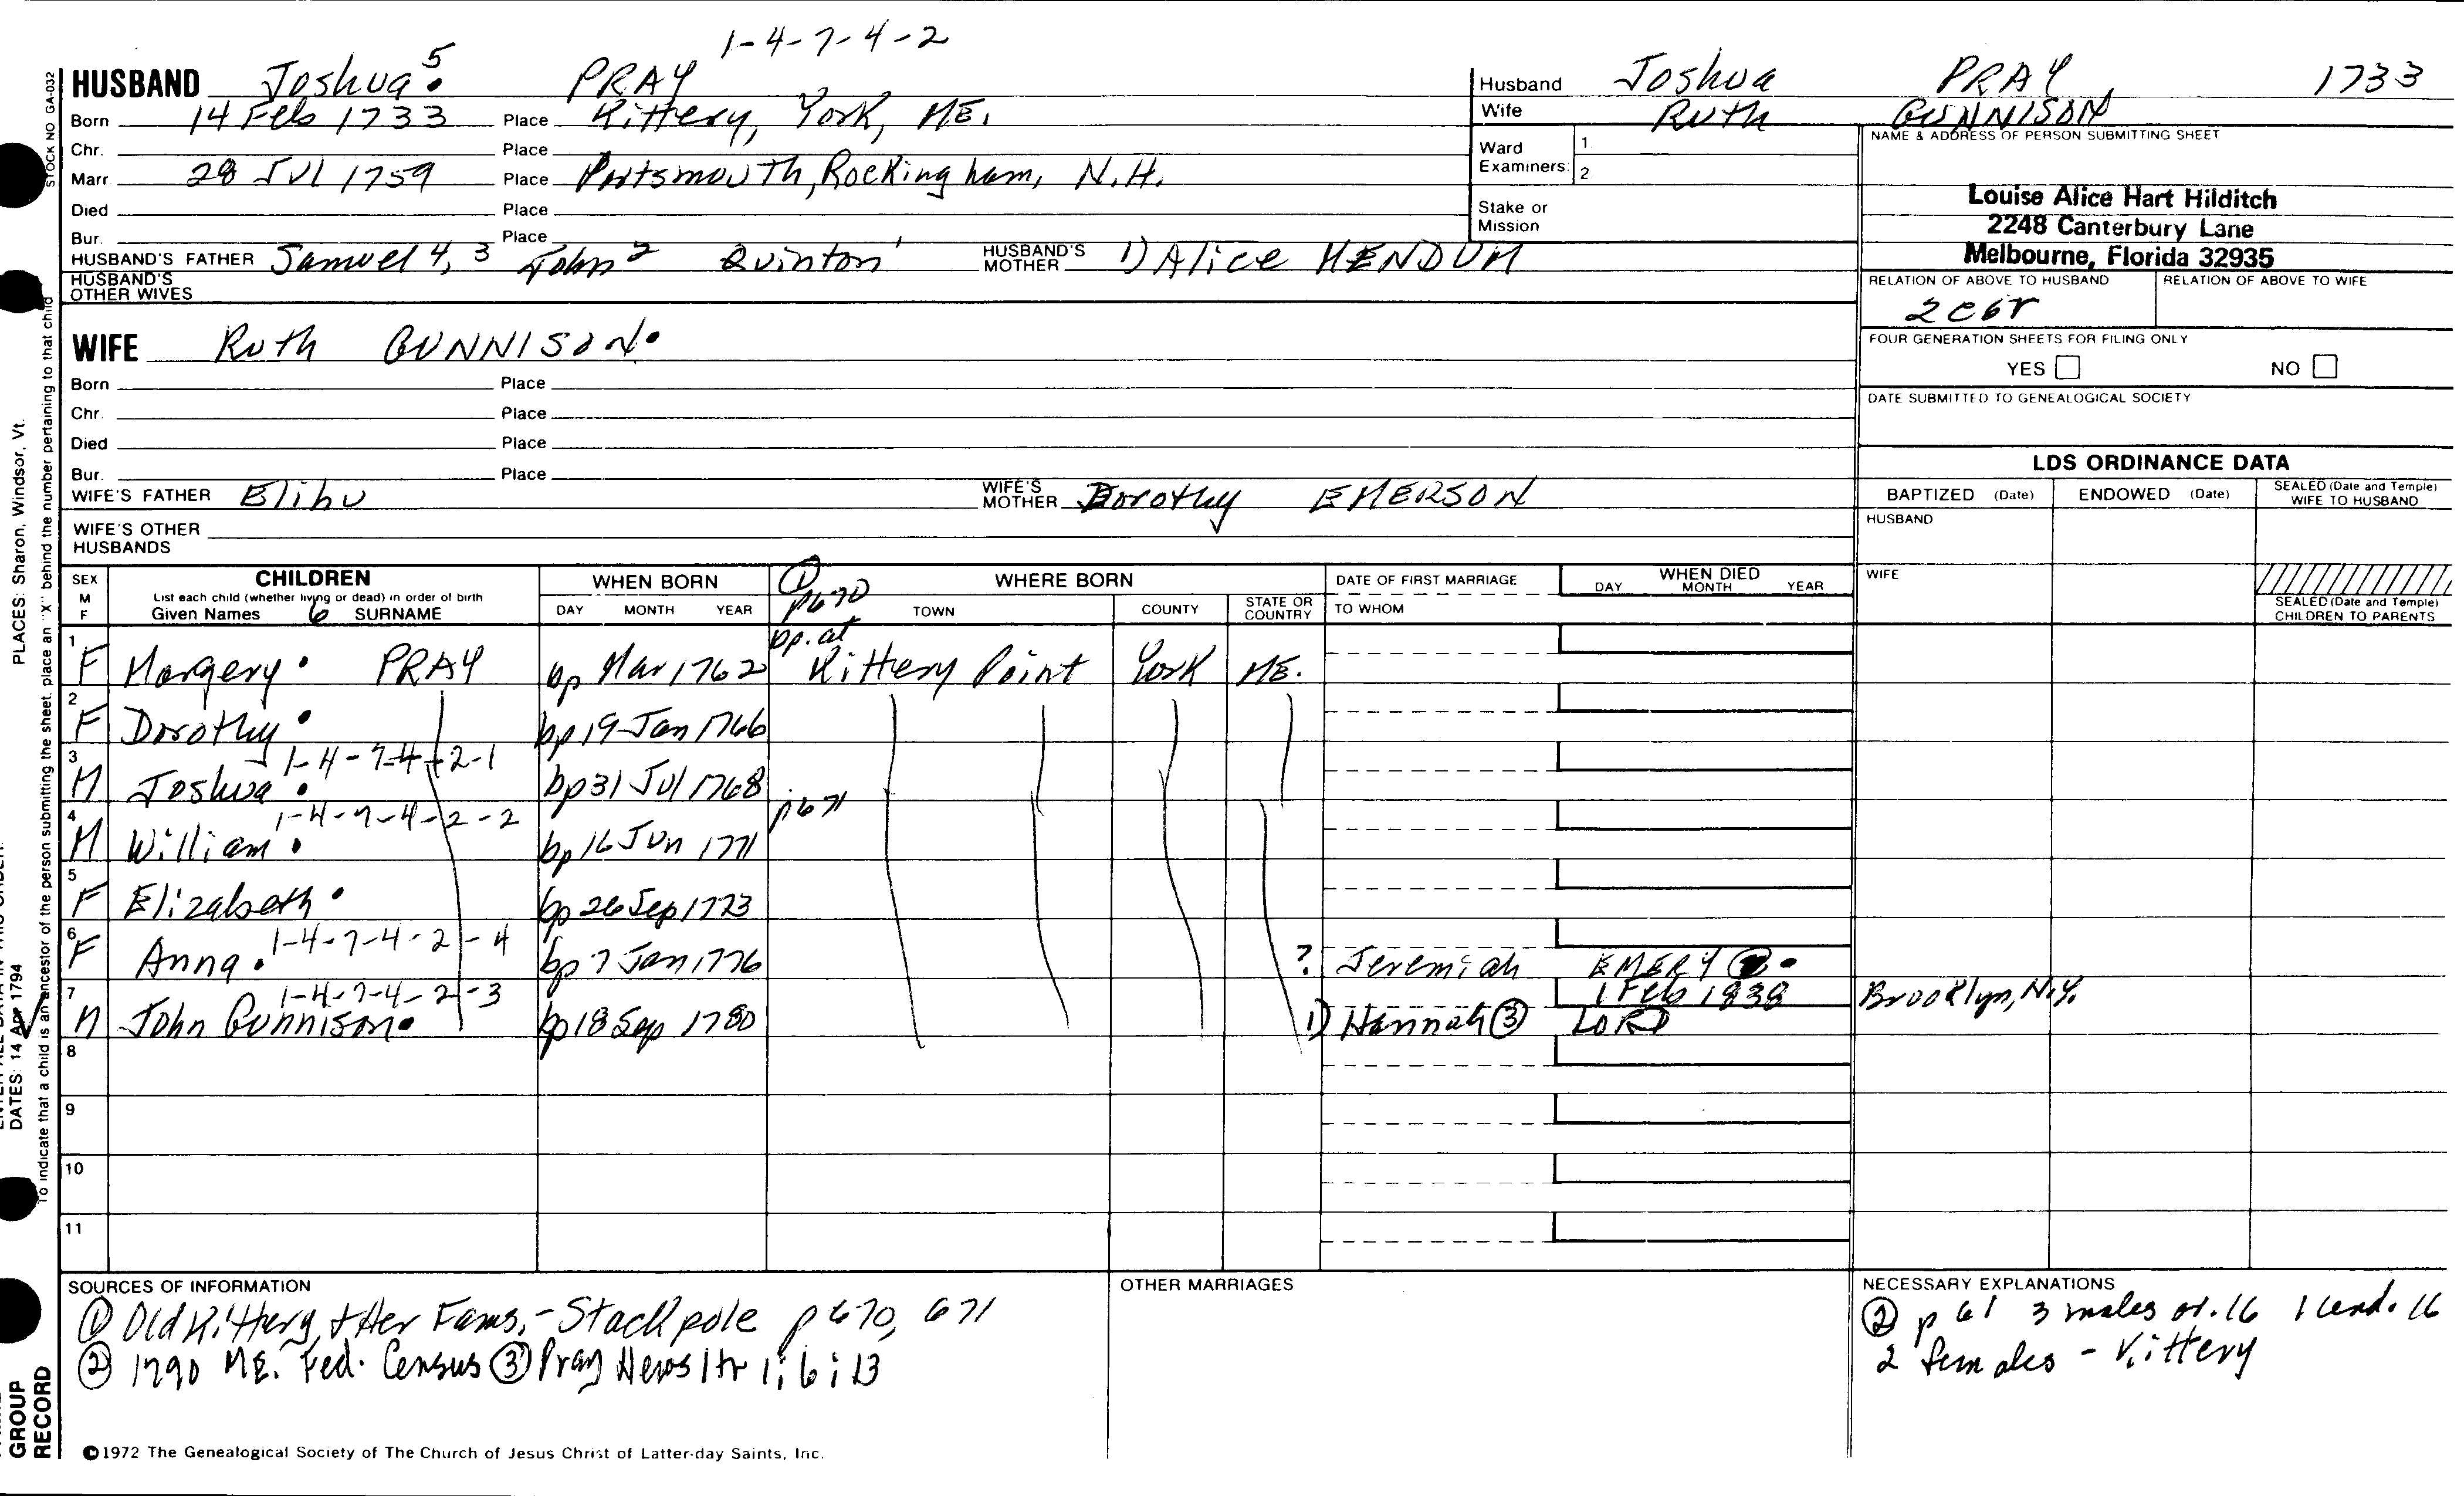 1-4-7-4-2
HUSBAND Joshua 5 PRAY
Born 14 Feb 1733 Place Kittery, York, ME.
Chr. Place
Marr. 28 Jul 1759 Place Portsmouth, Rockingham, N.H.
Died Place
Bur. Place
HUSBAND'S FATHER Samuel 4, 3 John 2 Quinton 1 HUSBAND'S MOTHER 1) Alice MENDUM
HUSBAND'S OTHER WIVES
WIFE Ruth GUNNISON
Born Place
Chr. Place
Died Place
Bur. Place
WIFE'S FATHER Elihu WIFE'S MOTHER Dorothy EMERSON
WIFE'S OTHER HUSBANDS
Husband Joshua PRAY 1733
Wife Ruth GUNNISON
Ward Examiners: 1. 2.
Stake or Mission
NAME & ADDRESS OF PERSON SUBMITTING SHEET
Louise Alice Hart Hilditch
2248 Canterbury Lane
Melbourne, Florida 32935
RELATION OF ABOVE TO HUSBAND RELATION OF ABOVE TO WIFE
2c6r
FOUR GENERATION SHEETS FOR FILING ONLY
YES NO
DATE SUBMITTED TO GENEALOGICAL SOCIETY
LDS ORDINANCE DATA
BAPTIZED (Date) ENDOWED (Date) SEALED (Date and Temple) WIFE TO HUSBAND
HUSBAND
WIFE
SEALED (Date and Temple) CHILDREN TO PARENTS
SEX M F
CHILDREN
List each child (whether living or dead) in order of birth
Given Names 6 SURNAME
WHEN BORN
DAY MONTH YEAR
① p670
WHERE BORN
TOWN COUNTY STATE OR COUNTRY
DATE OF FIRST MARRIAGE
TO WHOM
WHEN DIED
DAY MONTH YEAR
bp. at
1 F Margery PRAY bp Mar 1762 Kittery Point York ME.
2 F Dorothy bp 19 Jan 1766
1-4-7-4-2-1
3 M Joshua bp 31 Jul 1768
1-4-7-4-2-2 p671
4 M William bp 16 Jun 1771
5 F Elizabeth bp 26 Sep 1773
1-4-7-4-2-4
6 F Anna bp 7 Jan 1776 ? Jeremiah EMERY
1-4-7-4-2-3 1 Feb 1838 Brooklyn, N.Y.
7 M John Gunnison bp 18 Sep 1780 1) Hannah ③ LORD
8
9
10
11
SOURCES OF INFORMATION
① Old Kittery & Her Fams. - Stackpole p 670, 671
② 1790 ME. Fed. Census ③ Pray Newsltr 1; 6; 13
OTHER MARRIAGES
NECESSARY EXPLANATIONS
② p 61 3 males ov. 16 1 und. 16
2 females - Kittery
©1972 The Genealogical Society of The Church of Jesus Christ of Latter-day Saints, Inc.
STOCK NO GA-032
To indicate that a child is an ancestor of the person submitting the sheet, place an "X" behind the number pertaining to that child
PLACES: Sharon, Windsor, Vt.
DATES: 14 Apr 1794
GROUP
RECORD